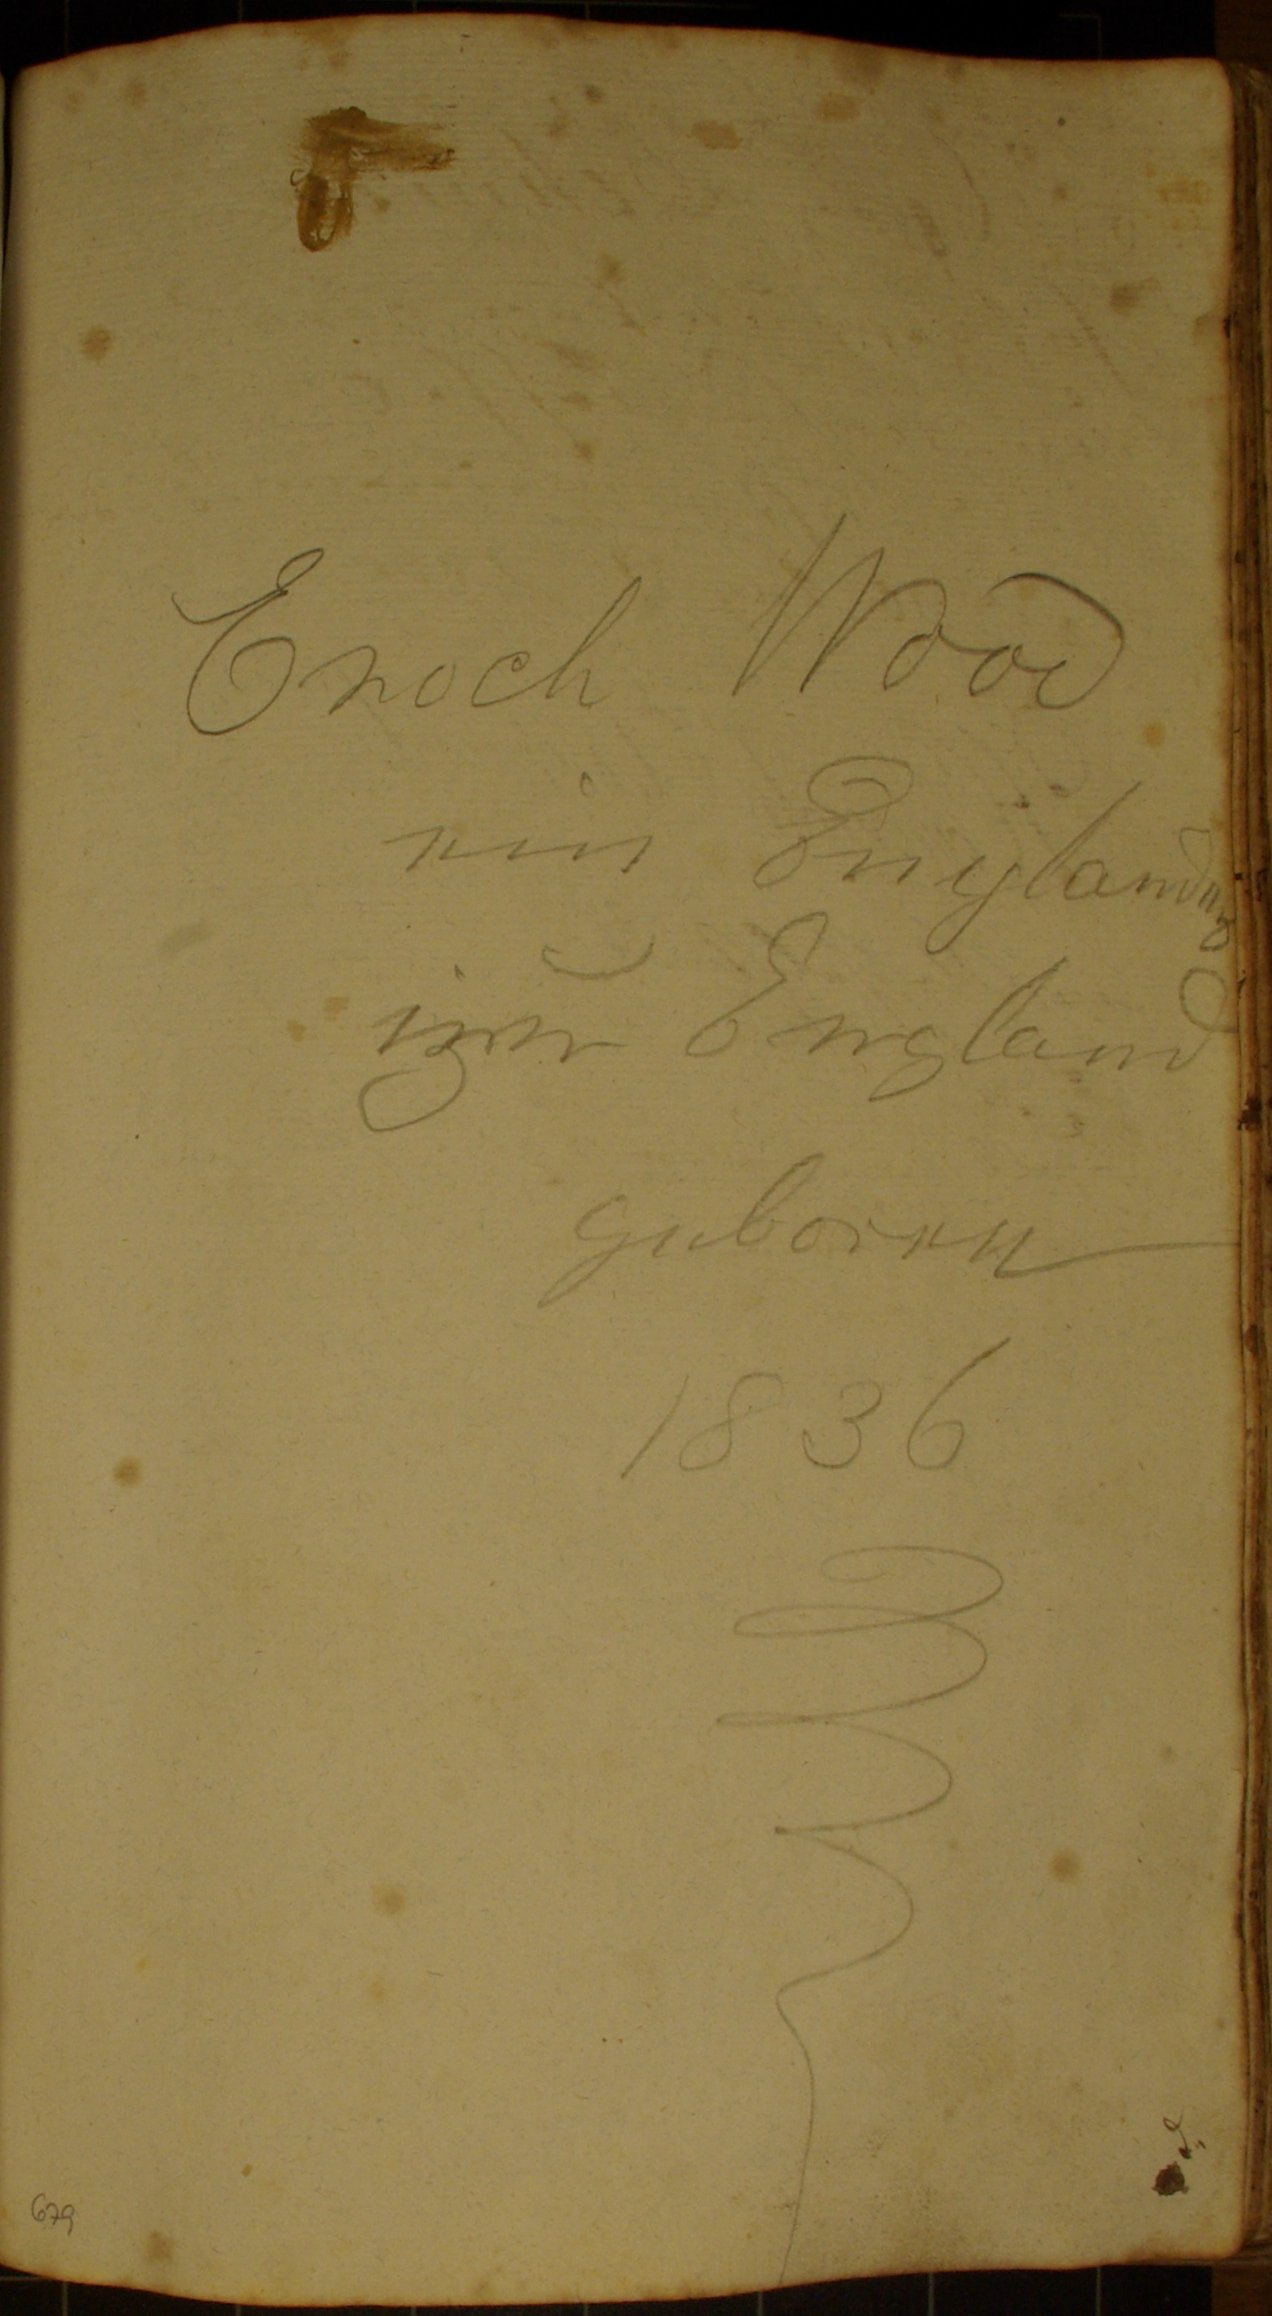 Enoch Wood
ein Englander
in England
geboren
1836
679